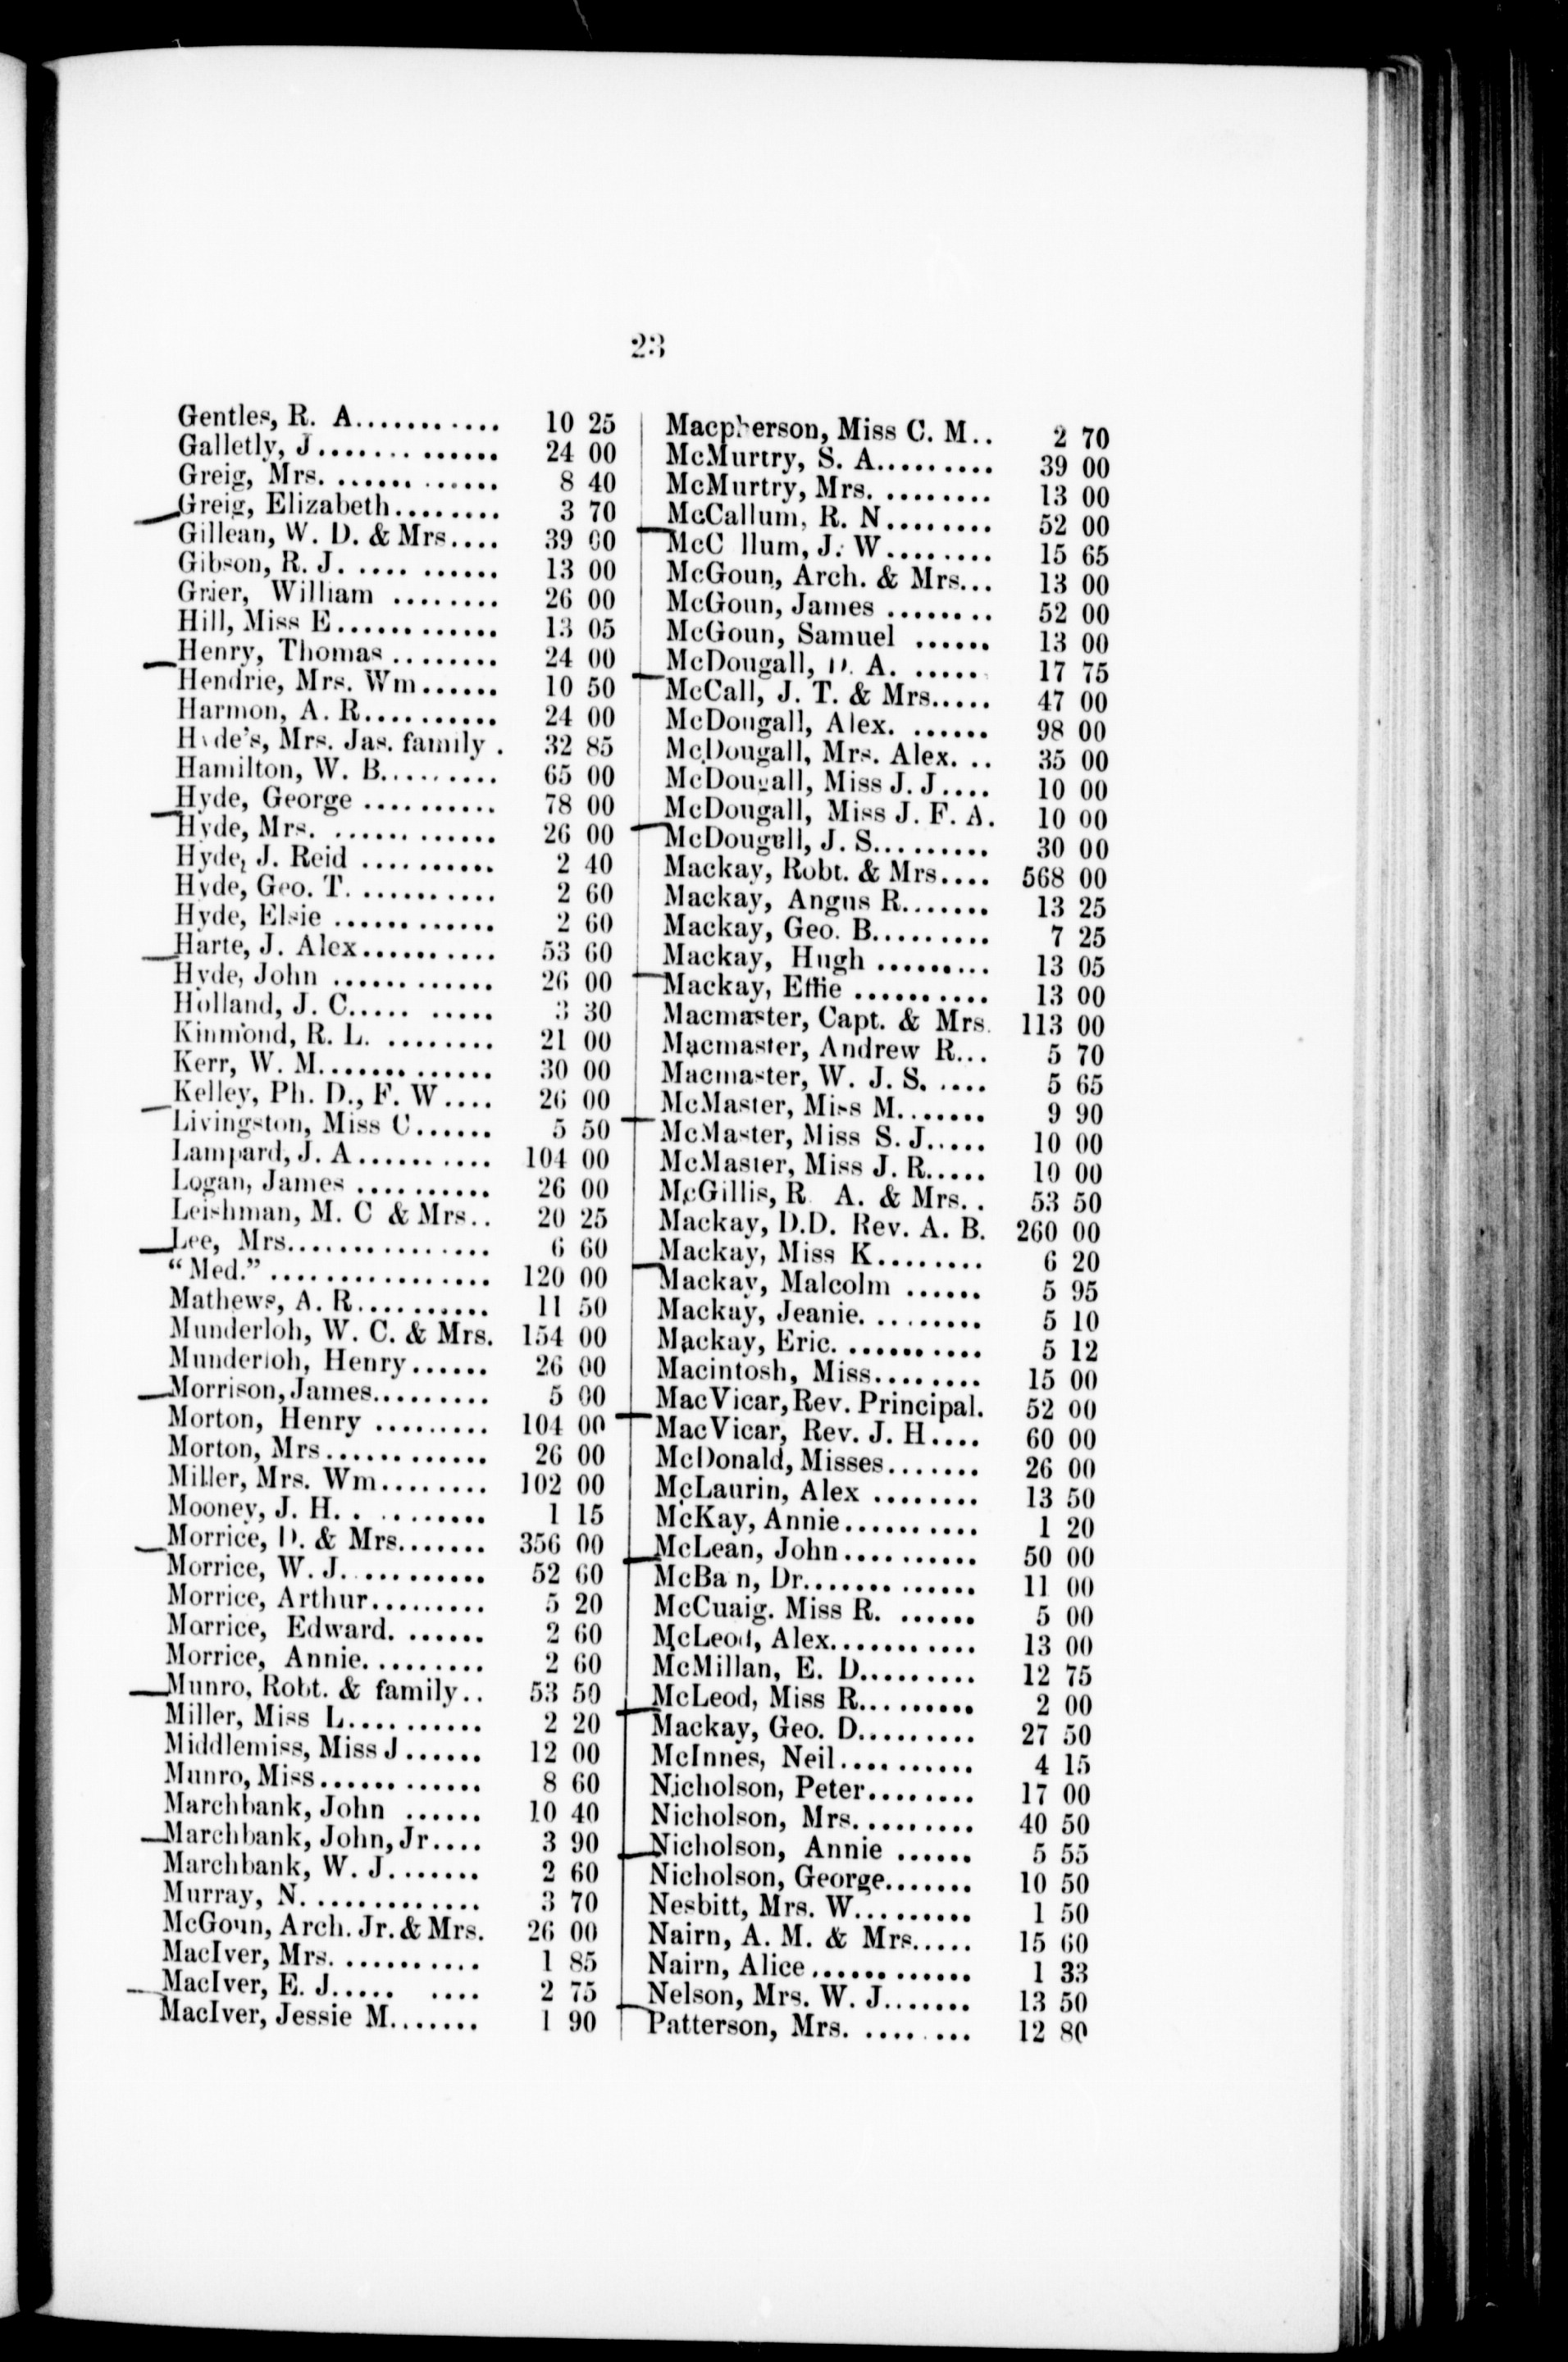 23
Gentles, R. A............ 10 25
Galletly, J.............. 24 00
Greig, Mrs. ............. 8 40
Greig, Elizabeth........ 3 70
Gillean, W. D. & Mrs.... 39 00
Gibson, R. J. .... ...... 13 00
Grier, William ........ 26 00
Hill, Miss E............ 13 05
Henry, Thomas ......... 24 00
Hendrie, Mrs. Wm...... 10 50
Harmon, A. R.......... 24 00
Hyde's, Mrs. Jas. family . 32 85
Hamilton, W. B......... 65 00
Hyde, George .......... 78 00
Hyde, Mrs. ............ 26 00
Hyde, J. Reid .......... 2 40
Hyde, Geo. T. ........... 2 60
Hyde, Elsie ............ 2 60
Harte, J. Alex.......... 53 60
Hyde, John ............ 26 00
Holland, J. C..... ..... 3 30
Kinmond, R. L. ........ 21 00
Kerr, W. M............. 30 00
Kelley, Ph. D., F. W.... 26 00
Livingston, Miss C...... 5 50
Lampard, J. A.......... 104 00
Logan, James .......... 26 00
Leishman, M. C & Mrs.. 20 25
Lee, Mrs............... 6 60
"Med." ................. 120 00
Mathews, A. R.......... 11 50
Munderloh, W. C. & Mrs. 154 00
Munderloh, Henry...... 26 00
Morrison, James......... 5 00
Morton, Henry ......... 104 00
Morton, Mrs............ 26 00
Miller, Mrs. Wm........ 102 00
Mooney, J. H. . ......... 1 15
Morrice, D. & Mrs....... 356 00
Morrice, W. J........... 52 60
Morrice, Arthur......... 5 20
Morrice, Edward. ...... 2 60
Morrice, Annie......... 2 60
Munro, Robt. & family.. 53 50
Miller, Miss L.......... 2 20
Middlemiss, Miss J...... 12 00
Munro, Miss............ 8 60
Marchbank, John ...... 10 40
Marchbank, John, Jr.... 3 90
Marchbank, W. J....... 2 60
Murray, N. ............. 3 70
McGoun, Arch. Jr. & Mrs. 26 00
MacIver, Mrs. .......... 1 85
MacIver, E. J..... .... 2 75
MacIver, Jessie M....... 1 90
Macpherson, Miss C. M.. 2 70
McMurtry, S. A......... 39 00
McMurtry, Mrs. ........ 13 00
McCallum, R. N........ 52 00
McC llum, J. W........ 15 65
McGoun, Arch. & Mrs... 13 00
McGoun, James ........ 52 00
McGoun, Samuel ...... 13 00
McDougall, D. A. ..... 17 75
McCall, J. T. & Mrs..... 47 00
McDougall, Alex. ...... 98 00
McDougall, Mrs. Alex. .. 35 00
McDougall, Miss J. J.... 10 00
McDougall, Miss J. F. A. 10 00
McDougall, J. S......... 30 00
Mackay, Robt. & Mrs.... 568 00
Mackay, Angus R....... 13 25
Mackay, Geo. B......... 7 25
Mackay, Hugh ......... 13 05
Mackay, Effie .......... 13 00
Macmaster, Capt. & Mrs. 113 00
Macmaster, Andrew R... 5 70
Macmaster, W. J. S. .... 5 65
McMaster, Miss M....... 9 90
McMaster, Miss S. J..... 10 00
McMaster, Miss J. R..... 10 00
McGillis, R A. & Mrs. . 53 50
Mackay, D.D. Rev. A. B. 260 00
Mackay, Miss K........ 6 20
Mackay, Malcolm ...... 5 95
Mackay, Jeanie. ........ 5 10
Mackay, Eric. .......... 5 12
Macintosh, Miss........ 15 00
MacVicar, Rev. Principal. 52 00
MacVicar, Rev. J. H.... 60 00
McDonald, Misses....... 26 00
McLaurin, Alex ........ 13 50
McKay, Annie.......... 1 20
McLean, John.......... 50 00
McBa n, Dr............. 11 00
McCuaig. Miss R. ...... 5 00
McLeod, Alex........... 13 00
McMillan, E. D......... 12 75
McLeod, Miss R......... 2 00
Mackay, Geo. D......... 27 50
McInnes, Neil.......... 4 15
Nicholson, Peter........ 17 00
Nicholson, Mrs.......... 40 50
Nicholson, Annie ...... 5 55
Nicholson, George....... 10 50
Nesbitt, Mrs. W......... 1 50
Nairn, A. M. & Mrs..... 15 60
Nairn, Alice............ 1 33
Nelson, Mrs. W. J....... 13 50
Patterson, Mrs. ..... ... 12 80